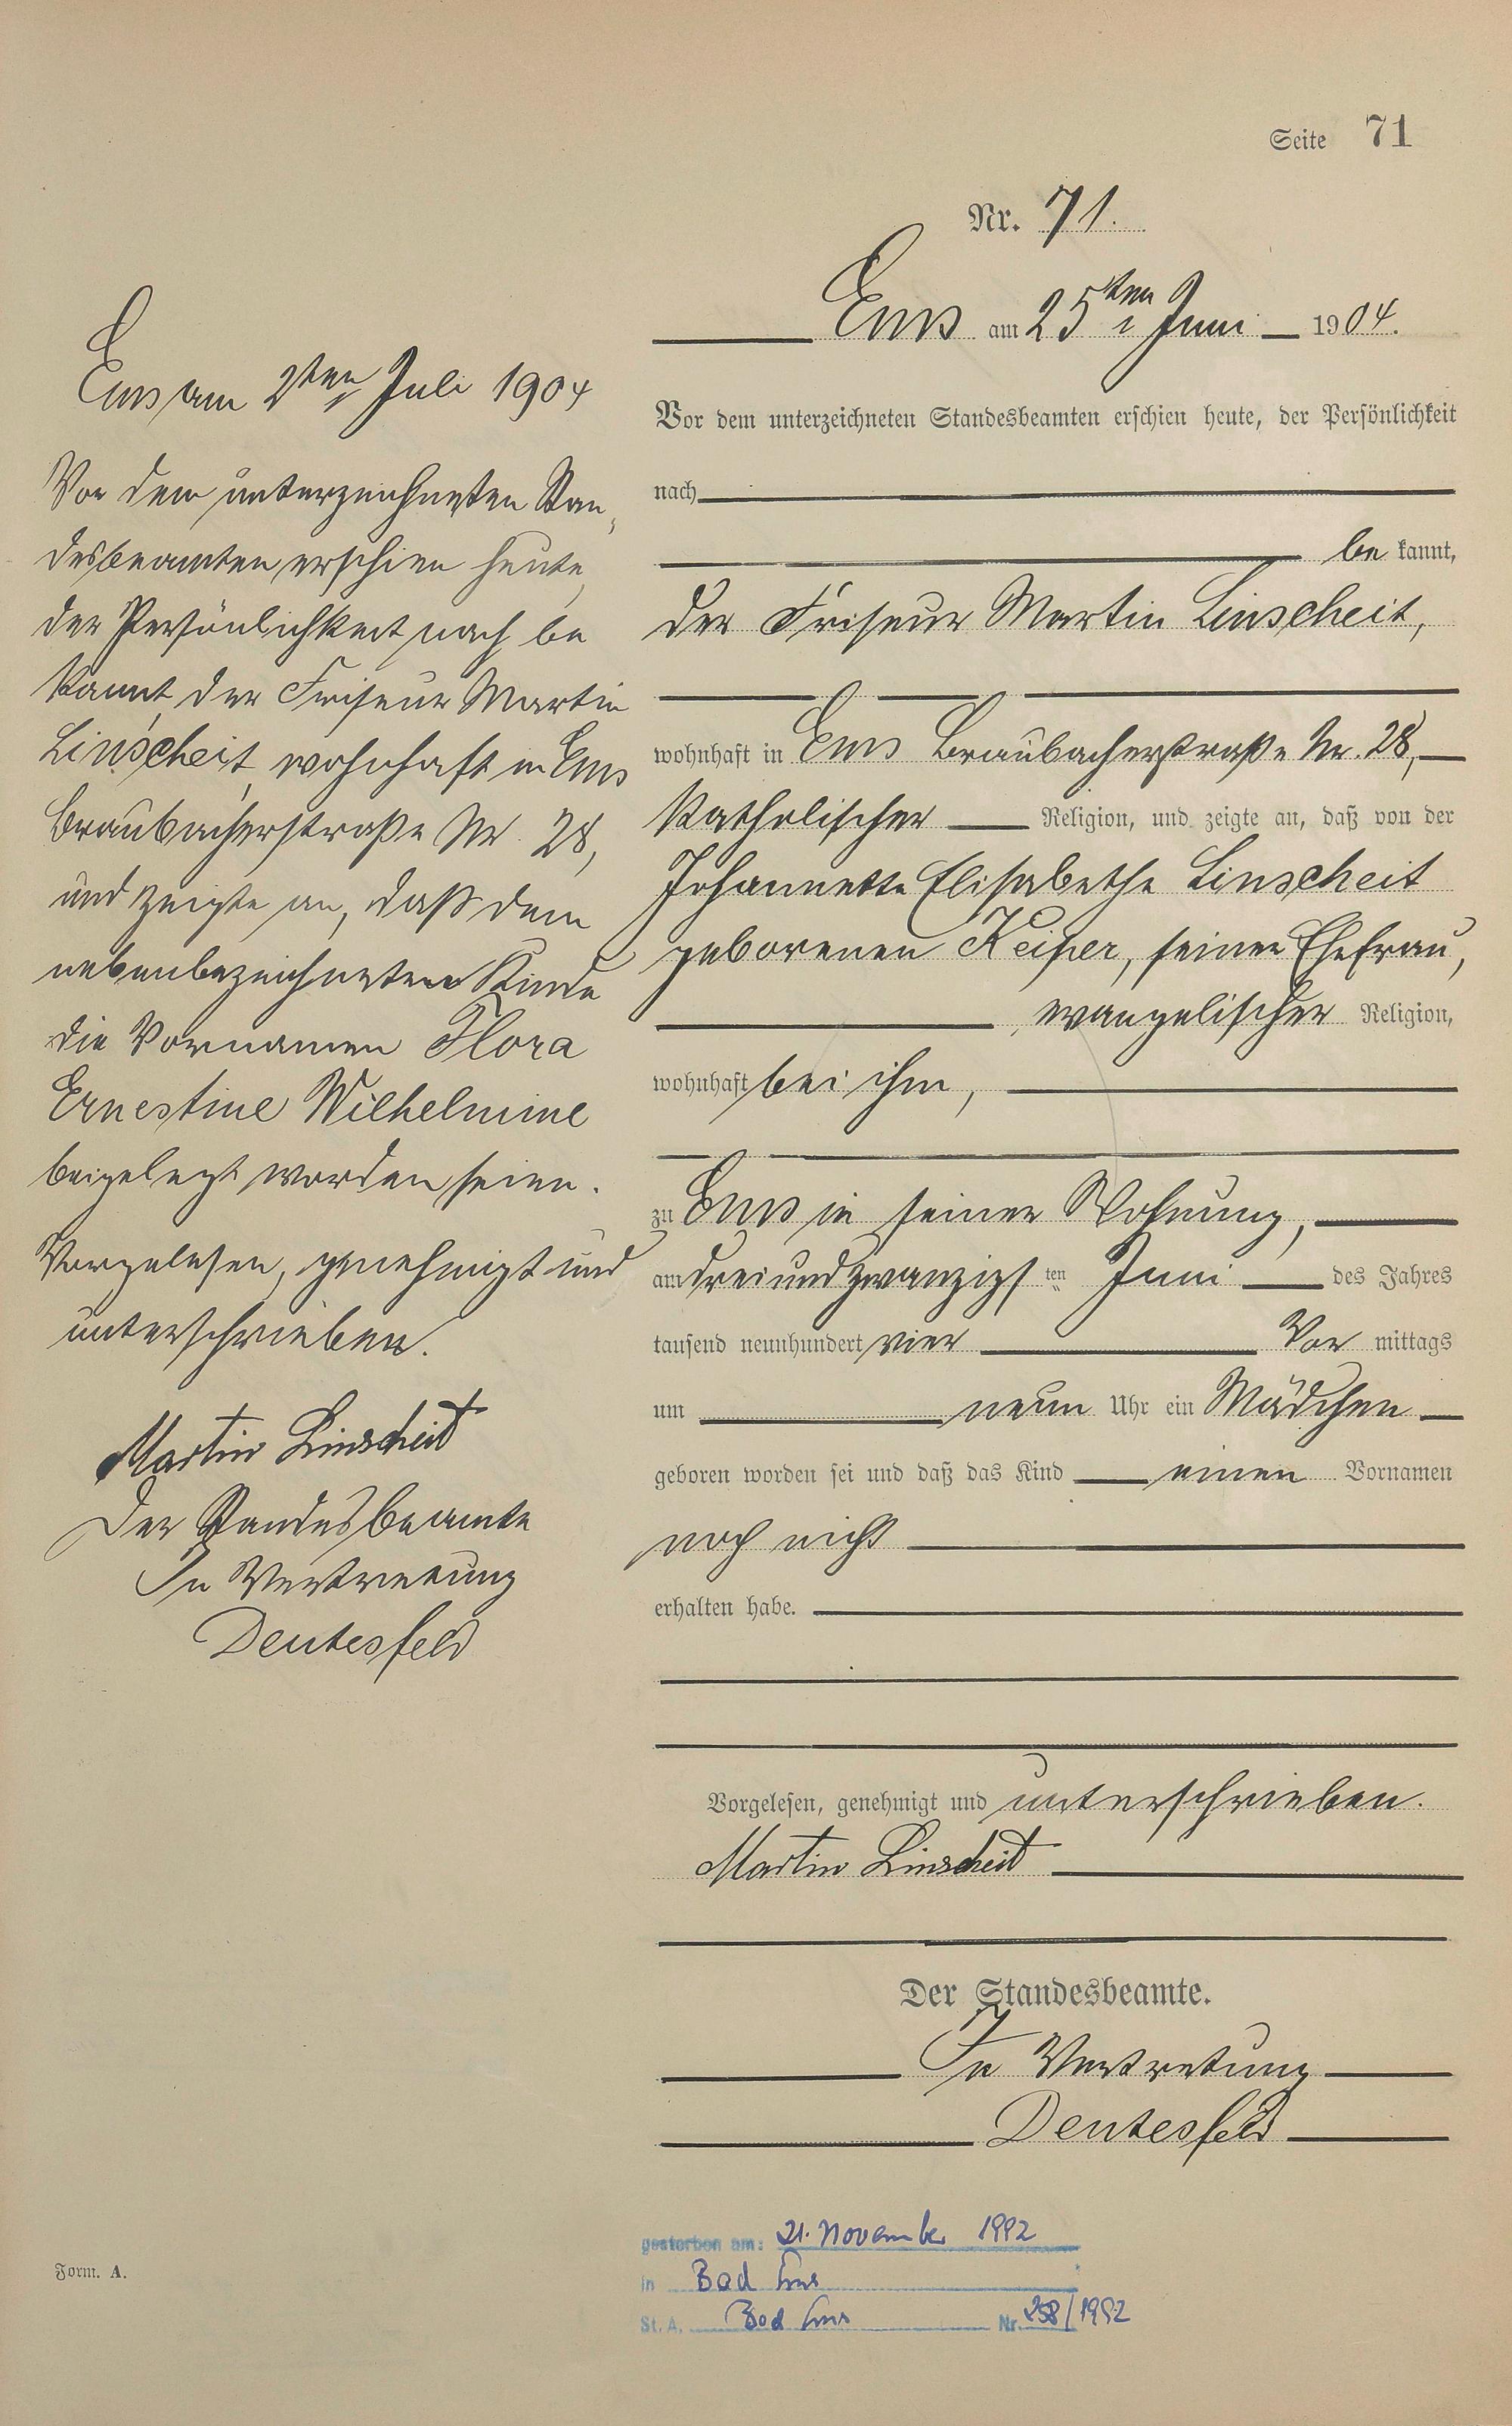 Seite 71
Nr. 71.
Ems am 25ten Juni 1904.
Vor dem unterzeichneten Standesbeamten erschien heute, der Persönlichkeit
nach
be kannt,
der Friseur Martin Linscheit,
wohnhaft in Ems Braubacherstraße Nr. 28,
katholischer Religion, und zeigte an, daß von der
Johannette Elisabethe Linscheit
geborenen Keiper, seiner Ehefrau,
evangelischer Religion,
wohnhaft bei ihm,
zu Ems in seiner Wohnung,
am dreiundzwanzigsten Juni des Jahres
tausend neunhundert vier Vor mittags
um neun Uhr ein Mädchen
geboren worden sei und daß das Kind einen Vornamen
noch nicht
erhalten habe.
Vorgelesen, genehmigt und unterschrieben.
Martin Linscheid
Der Standesbeamte.
In Vertretung
Deutesfeld
Ems am 2ten Juli 1904
Vor dem unterzeichneten Stan-
desbeamten erschien heute,
der Persönlichkeit nach be
kannt, der Friseur Martin
Linscheit, wohnhaft in Ems
Braubacherstraße Nr. 28,
und zeigte an, daß dem
nebenbezeichneten Kinde
die Vornamen Flora
Ernestine Wilhelmine
beigelegt worden seien.
Vorgelesen, genehmigt und
unterschrieben.
Martin Linscheid
Der Standesbeamte
In Vertretung
Deutesfeld
gestorben am: 21. November 1992
in Bad Ems
St. A. Bad Ems Nr. 258/1992
Form. A.